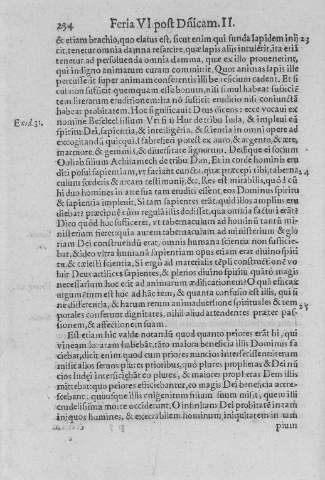 254 Feria VI post Dñicam. II.
& etiam brachio, quo elatus est, sicut enim qui funda lapidem inij 23
cit, tenetur omnia damna resarcire, quæ lapis alijs intulerit, ita etiã
tenetur ad persoluenda omnia damna, quæ ex illo prouenerint,
qui indigno animarum curam committit. Quot animas lapis ille
perculisset exanimandas si
cut non sufficit quemquam esse bonum, nisi simul habeat sufficiē
tem literarum eruditionem, ita nõ sufficit eruditio nisi coniunctã
habeat probitatem. Hoc significauit Deus dicens: ecce vocaui ex
Exod. 31. nomine Beseleel filium Vri filij Hur de tribu Iuda, & impleui eũ
spiritu Dei, sapientia, & intelligẽtia, & scientia in omni opere ad
excogitandũ quicquid fabrefieri potest ex auro, & argento, & ære,
marmore, & gemmis, & diuersitate lignorum. Dedique ei socium
Ooliab filium Achisamech de tribu Dan, Et in corde hominis eru
diti posui sapientiam, vt faciant cuncta, quæ præcepi tibi, taberna
culum fœderis & arcam testimonij, &c. Res est mirabilis, quòd cũ
hi duo homines in arte sua tam eruditi essent, eos Dominus spiritu
& sapientia impleuit. Si tam sapientes erãt, quid illos amplius eru
Dico quòd hoc sufficeret, verum
nisterium fieret quia autem tabernaculum ad ministerium & glo
riam Dei construendũ erat, omnis humana scientia non sufficie-
bat, & ideo vltra humanã sapientiam opus etiam erat diuino spiri
tu, & cælesti scientia, Si ergo ad materialis tẽpli constructionẽ vo
luit Deus artifices sapientes, & plenos diuino spiritu quãtò magis
necessarium hoc erit ad animarum ædificationem? O quã efficax
argumentum est hoc ad hãc rem, & quanta confusio est illis, qui si
ne differentia, & harum rerum animaduersione spirituales & tem 25
porales conferunt dignitates, nihil aliud attendentes præter pas-
sionem, & affectionem suam.
Est etiam hic valde notandũ quod quanto peiores erãt hi, qui
vineam locatam habebãt, tãto maiora beneficia illis Dominus fa
ciebat, dicit enim quod cum priores nuncios interfecissent iterum
misit alios seruos plures prioribus, quò plures prophetas & Dei nũ
cios Iudæi interficiebãt eo plures, & maiores prophetas Deus illis
mittebat quo peiores efficiebantur, eo magis Dei beneficia accre-
scebant, quousque illis vnigenitum filium suum misit, quem illi
crudelissima morte occiderunt. O infinitam Dei probitatẽ in tam
iniquos homines, & execrabilem hominum iniquitatem in tam
pium